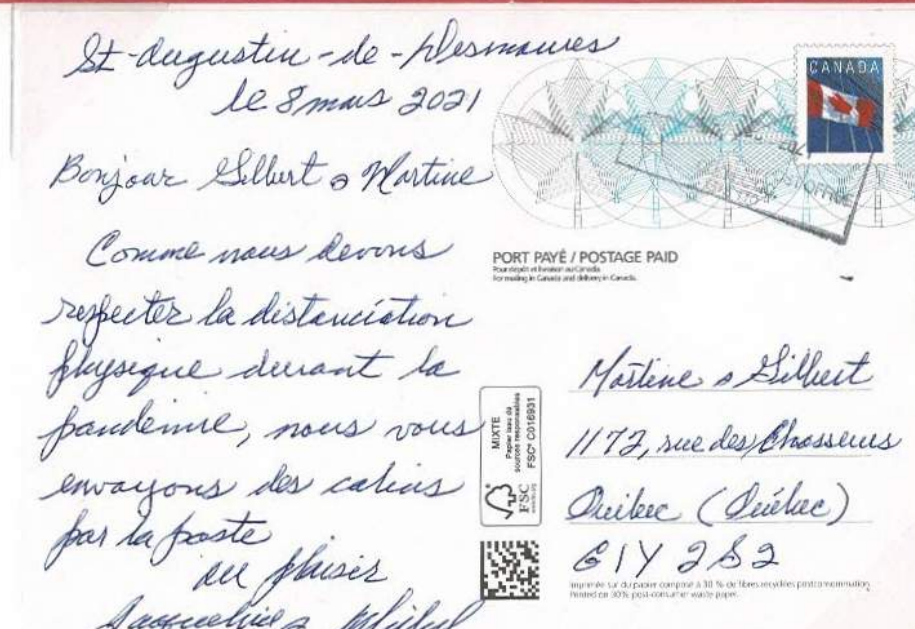 St-Augustin-de-Desmaures
le 8 mars 2021
Bonjour Gilbert & Martine
Comme nous devons
respecter la distanciation
physique durant la
pandémie, nous vous
envoyons des calins
par la poste
au plaisir
Jacqueline & Michel
CANADA
POST OFFICE
PORT PAYÉ / POSTAGE PAID
Pour dépôt et livraison au Canada.
For mailing in Canada and delivery in Canada.
MIXTE
Papier issu de
sources responsables
FSC® C016931
FSC
www.fsc.org
Martine & Gilbert
1172, rue des Chasseurs
Québec (Québec)
G1Y 2S2
Imprimée sur du papier composé à 30 % de fibres recyclées postconsommation.
Printed on 30% post-consumer waste paper.